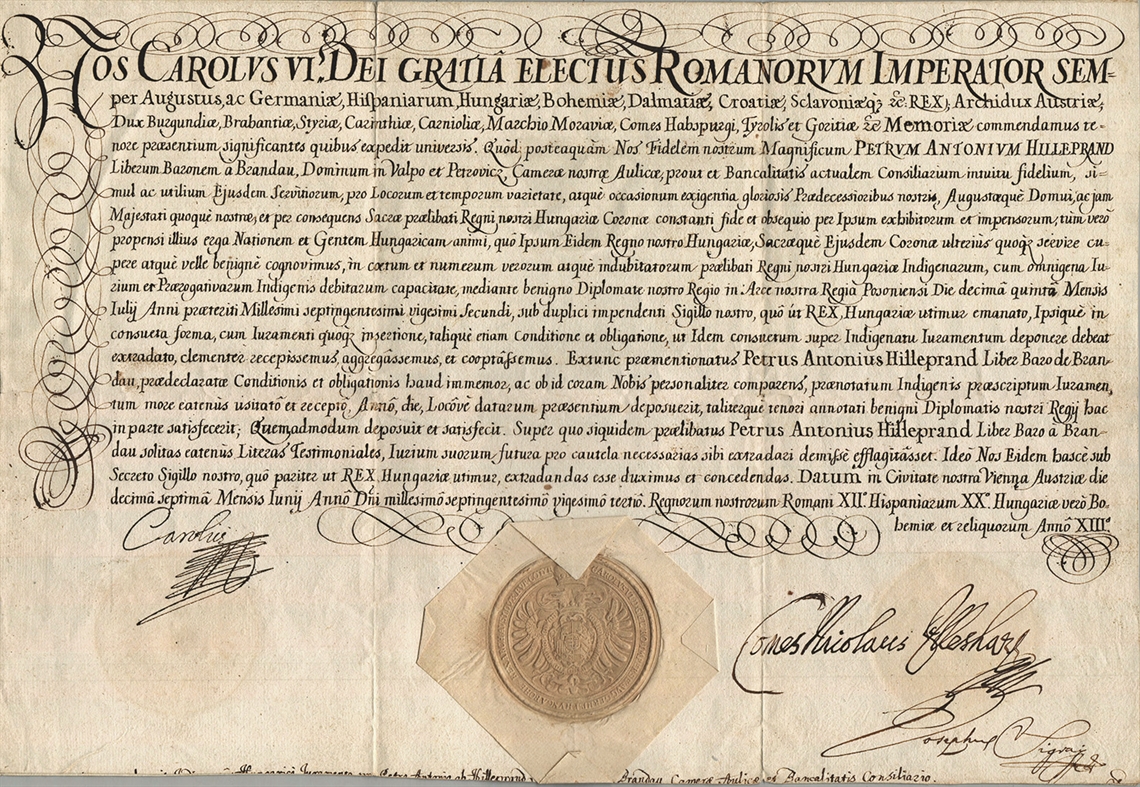 Nos Carolvs VI.s Dei gratiâ electus Romanorvm Imperator sem=
per Augustus, ac Germaniæ, Hispaniarum, Hungariæ, Bohemiæ, Dalmatiæ, Croatiæ, Sclavoniæq; &c. REX; Archidux Austriæ,
Dux Burgundiæ, Brabantiæ, Styriæ, Carinthiæ, Carnioliæ, Marchio Moraviæ, Comes Habspurgi, Tyrolis et Goritiæ &c. Memoriæ commendamus te=
nore præsentium significantes quibus expedit universis. Quòd posteaquàm Nos Fidelem nostrum Magnificum PETRVM ANTONIVM HILLEPRAND
Liberum Baronem à Brandau, Dominum in Valpo et Petrovicz, Cameræ nostræ Aulicæ, prout et Bancalitatis actualem Consiliarium intuitu fidelium, si=
mul ac utilium Ejusdem Servitiorum, pro Locorum et temporum varietate, atquè occasionum exigentia gloriosis Prædecessioribus nostris, Augustæquè Domui, ac jam
Majestati quoquè nostræ, et per consequens Sacræ prælibati Regni nostri Hungariæ Coronæ constanti fide et obsequio per Ipsum exhibitorum et impensorum; tùm verò
propensi illius erga Nationem et Gentem Hungaricam animi, quô Ipsum Eidem Regno nostro Hungariæ, Sacræquè Ejusdem Coronæ ulterius quoq; servire cu=
pere atquè velle benignè cognovimus, in cœtum et numerum verorum atquè indubitatorum prælibati Regni nostri Hungariæ Indigenarum, cum omnigena Iu=
rium et Prærogativarum Indigenis debitarum capacitate, mediante benigno Diplomate nostro Regio in Arce nostra Regia Posoniensi Die decimâ quintâ Mensis
Iulij Anni præteriti Millesimi septingentesimi vigesimi Secundi, sub duplici impendenti Sigillo nostro, quô út REX Hungariæ utimur emanato, Ipsiquè in
consueta forma, cum Iuramenti quoq; insertione, taliquè etiam Conditione et obligatione, ut Idem consuetum super Indigenatu Iuramentum deponere debeat
extradato, clementer recepissemus, aggregâssemus, et cooptâssemus. Extunc præmentionatus Petrus Antonius Hilleprand Liber Baro de Bran=
dau, prædeclaratæ Conditionis et obligationis haud immemor, ac ob id coram Nobis personaliter comparens, prænotatum Indigenis præscriptum Iuramen,
tum more eatenùs usitatô et receptô, Annô, die, Locôvè datarum præsentium deposuerit, taliterquè tenori annotati benigni Diplomatis nostri Regij hac
in parte satisfecerit; Quemadmodum deposuit et satisfecit. Super quo siquidem prælibatus Petrus Antonius Hilleprand Liber Baro à Bran=
dau solitas eatenùs Literas Testimoniales, Iurium suorum futura pro cautela necessarias sibi extradari demissè efflagitâsset. Ideò Nos Eidem hasce sub
Secreto Sigillo nostro, quô pariter ut REX Hungariæ utimur, extradandas esse duximus et concedendas. Datum in Civitate nostra Vienna Austriæ die
decimâ septimâ Mensis Iunij Annô Dñi millesimô septingentesimô vigesimô tertiô. Regnorum nostrorum Romani XII.o Hispaniarum XX.o Hungariæ verò Bo=
hemiæ et reliquorum Annô XIII.o
Carolus
Comes Nicolaus Illeshazy
Josephus
Brandau Cameræ Aulicæ et Bancalitatis Consiliario.